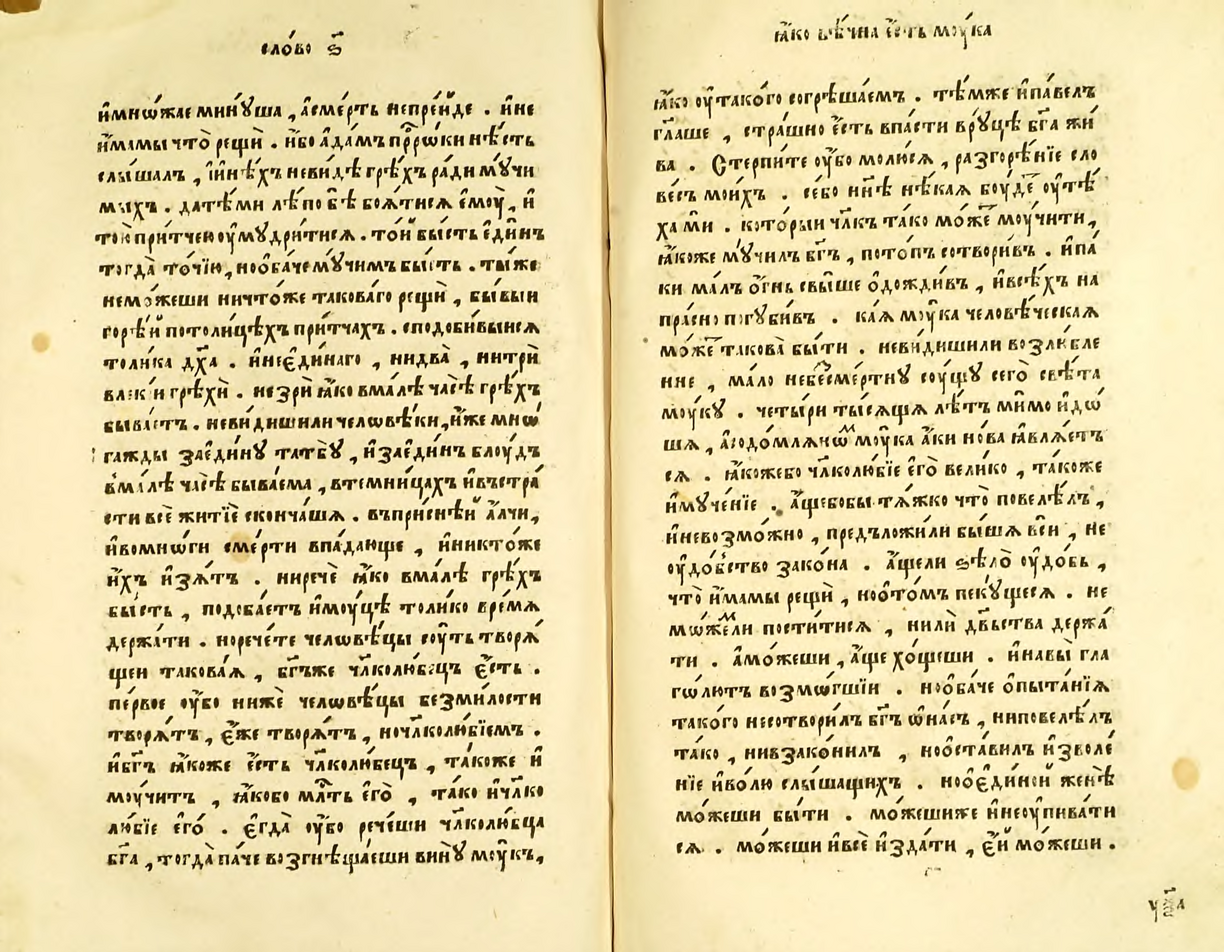 сло́во ѕ҃
и҆мнѡ́жае мину́ша , а҆сме́рть непрі́иде . и҆не
и҆́мамы что̀ рещѝ . и҆́бо а҆да́мъ прⷪ҇рѡ́ки нѣ́сть
слы́шалъ , і҆и҆нѣ́хъ невидѣ̀ грѣ́хъ ра́ди мꙋ́чи
мыхъ . да тѣ́ми лѣ́по бѣ̀ боѧ́тисѧ є҆мꙋ̀ , и҆
то́ю при́тчею оу҆мꙋ́дритисѧ . то́и бы́сть є҆ди́нъ
тогда̀ то́чїю , нооба́че мꙋ́чимъ бы́сть . ты́же
немо́жеши ничто́же такова́го рещѝ , бы́выи
горѣ́и потоли́цѣхъ при́тчахъ . сподо́бивыисѧ
толи́ка дх҃а . и҆неє҆ди́наго , нидва̀ , нитрѝ
ва́жни грѣхѝ . незрѝ ꙗ҆́ко вма́лѣ ча́сѣ грѣ́хъ
быва́етъ . неви́дишили челѡвѣ́ки , и҆́же мнѡ́
гажды заєди́нꙋ татбꙋ̀ , и҆заєди́нъ блоу́дъ
вма́лѣ ча́сѣ быва́ема , втемни́цахъ и҆въстра́
сти всѐ житїѐ сконча́шѧ . въпри́снѣи а҆́лчи ,
и҆вомнѡ́ги сме́рти впа́дающе , и҆никто́же
и҆́хъ и҆зѧ́тъ . ниречѐ ꙗ҆́ко вма́лѣ грѣ́хъ
бы́сть , подоба́етъ и҆моу́цѣ толи́ко вре́мѧ
держа́ти . норече́те челѡвѣ́цы соу́ть творѧ́
щеи такова́ѧ , бг҃ъже чл҃колю́бецъ є҆́сть .
пе́рвое оу҆́бо нижѐ челѡвѣ́цы безми́лости
творѧ́тъ , є҆́же творѧ́тъ , ночл҃колю́бїемъ .
и҆бг҃ъ ꙗ҆́коже є҆́сть чл҃колю́бецъ , та́коже и҆
моу́читъ , ꙗ҆́кобо млⷭ҇ть є҆го̀ , та́ко и҆чл҃ко
лю́бїе є҆го́ . є҆гда̀ оу҆́бо рече́ши чл҃колю́бца
бг҃а , тогда̀ па́че возгнѣща́еши винꙋ̀ моу́къ ,
ꙗ҆́ко вѣ́чна є҆́сть моу́ка
ꙗ҆́ко оу҆тако́го согрѣша́емъ . тѣ́мже и҆па́велъ
гл҃аше , стра́шно є҆́сть впа́сти врꙋ́цѣ бг҃а жи
ва . Стерпи́те оу҆́бо молю́сѧ , разгорѣ́нїе сло
ве́съ мои́хъ . се́бо нн҃ѣ нѣ́каѧ боу́де оу҆тѣ́
ха ми . кото́рыи чл҃къ та́ко мо́же моу́чити ,
ꙗ҆́коже мꙋ́чилъ бг҃ъ , пото́пъ сотвори́въ . и҆па́
ки ма́лъ о҆́гнь свы́ше о҆дожди́въ , и҆всѣ́хъ на
пра́сно погꙋби́въ . ка́ѧ моу́ка человѣ́ческаѧ
мо́же такова̀ бы́ти . неви́дишили возлю́бле
нне , ма́ло небесме́ртнꙋ соу́щꙋ сего̀ свѣ́та
моу́кꙋ . четы́ри ты́сѧщѧ лѣ́тъ ми́мо и҆дѡ́
шѧ , а҆содо́млѧнѡⷨ моу́ка а҆́ки но́ва ꙗ҆влѧ́етъ
сѧ . ꙗ҆́кожебо чл҃колю́бїе є҆го̀ вели́ко , та́коже
и҆мꙋче́нїе . а҆́щебобы тѧ́жко что̀ повелѣ́лъ ,
и҆невозмо́жно , предъложи́ли бы́шѧ всѝ , не
оу҆до́бьство зако́на . а҆́щели ѕѣло̀ оу҆до́бь ,
что̀ и҆́мамы рещѝ , ноо҆то́мъ пекꙋ́щесѧ . не
мѡ́жеⷨли пости́тисѧ , нили дв҃ьства держа́
ти . а҆мо́жеши , а҆́ще хо́щеши . и҆навы̀ гла
го́лютъ возмо́гшїи . нооба́че о҆пыта́нїѧ
тако́го несотвори́лъ бг҃ъ ѡ҆на́съ , ниповелѣ́лъ
та́ко , нивзако́нилъ , ноо҆ста́вилъ и҆зволе́
нїе и҆во́лю слы́шащихъ . ноо҆є҆ди́нои женѣ̀
мо́жеши бы́ти . мо́жешиже и҆неоу҆пива́ти
сѧ . мо́жеши и҆всѐ и҆зда́ти , є҆́и мо́жеши .